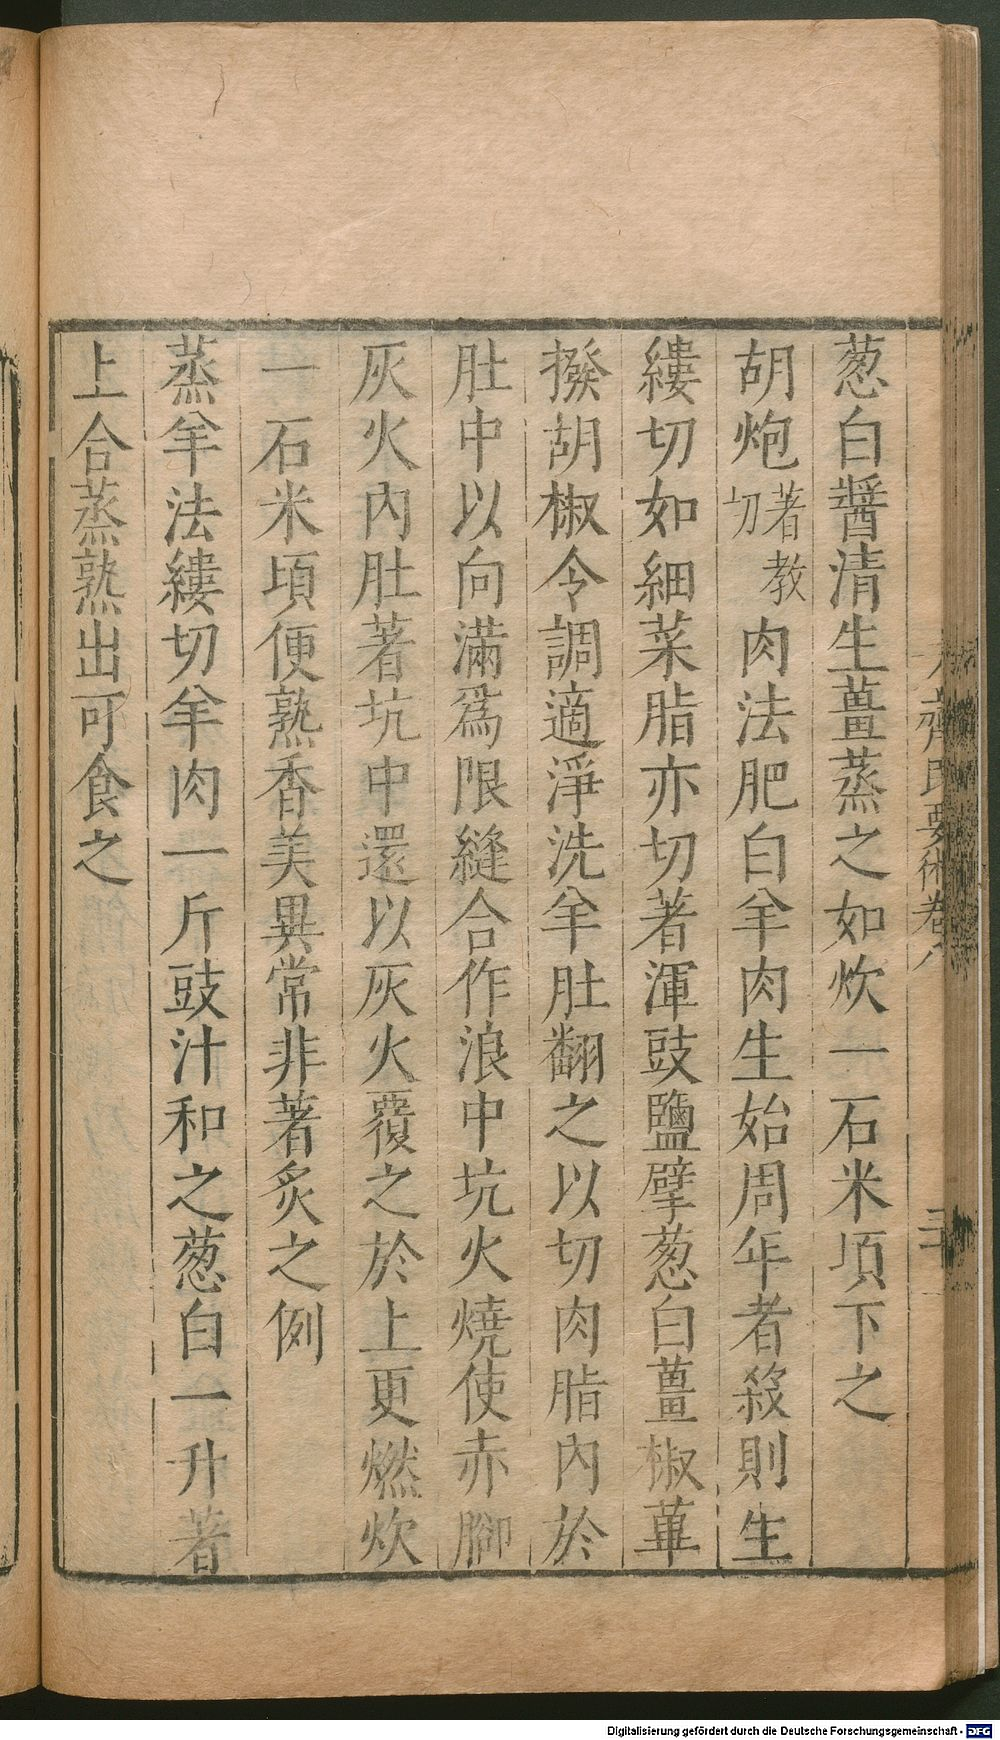 葱白醬清生薑蒸之如炊一石米頃下之
胡炮著教切肉法肥白羊肉生始周年者殺則生
縷切如細菜脂亦切著渾豉鹽擘葱白薑椒蓽
撥胡椒令調適淨洗羊肚翻之以切肉脂內於
肚中以向滿爲限縫合作浪中坑火燒使赤腳
灰火內肚著坑中還以灰火覆之於上更燃炊
一石米頃便熟香美異常非著炙之例
蒸羊法縷切羊肉一斤豉汁和之葱白一升著
上合蒸熟出可食之
齊民要術卷八
Digitalisierung gefördert durch die Deutsche Forschungsgemeinschaft - DFG